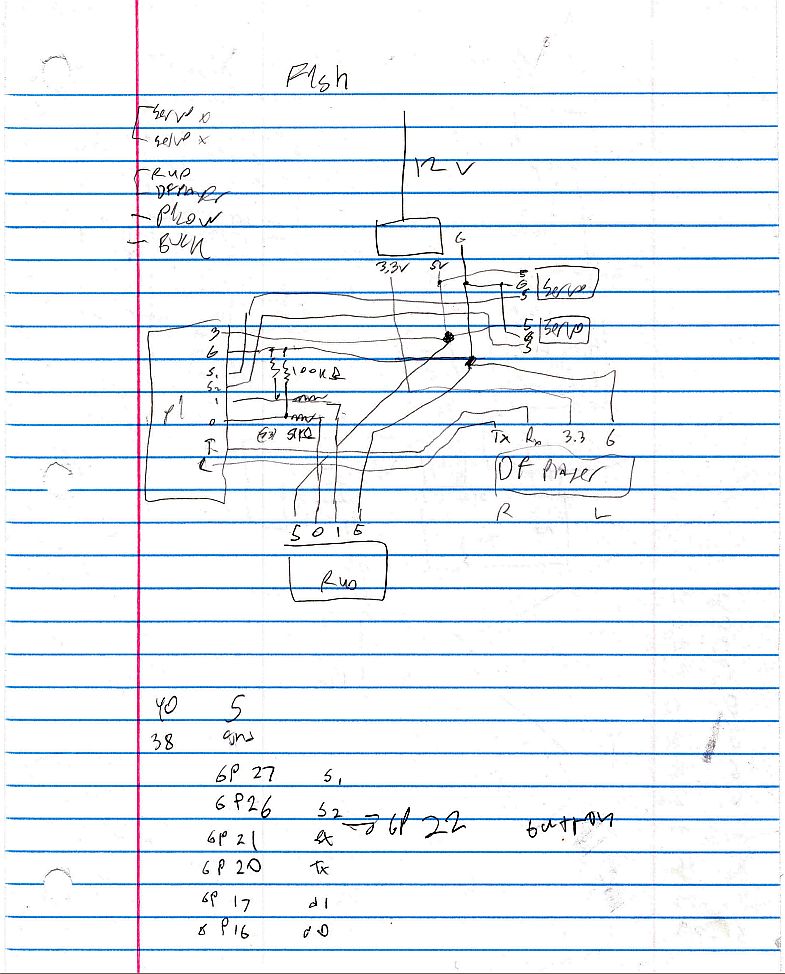 FIsh
Servo
Servo x
RUD
DFPlayer
PICOW
BUCK
12 V
G
3.3V 5V
5
G Servo
S
5
G Servo
S
3
G
S1
S2
1
0
T
R
PI
100KΩ
51KΩ
Tx Rx 3.3 G
DF Player
R L
5 0 1 G
RUD
40 5
38 gnd
GP 27 S1
GP26 S2 GP 22 button
GP 21 RX
GP 20 Tx
GP 17 d1
GP16 d0